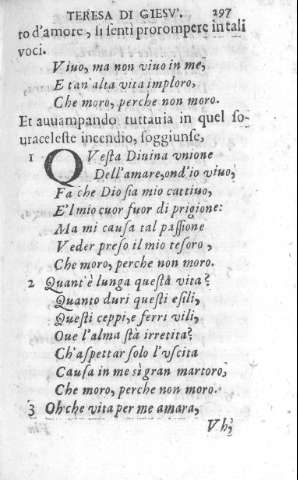 TERESA DI GIESV'. 297
to d'amore, si sentì prorompere in tali
voci.
Viuo, ma non viuo in me,
E tan alta vita imploro,
Che moro, perche non moro.
Et auuampando tuttauia in quel so-
uraceleste incendio, soggiunse,
1 QVesta Diuina vnione
Dell'amare, ond'io viuo,
Fa che Dio sia mio cattiuo,
E'l mio cuor fuor di prigione:
Ma mi causa tal passione
Veder preso il mio tesoro,
Che moro, perche non moro.
2 Quant'è lunga questa vita?
Quanto duri questi esili,
Questi ceppi, e ferri vili,
Oue l'alma stà irretita?
Ch'aspettar solo l'vscita
Causa in me sì gran martoro,
Che moro, perche non moro.
3 Oh che vita per me amara,